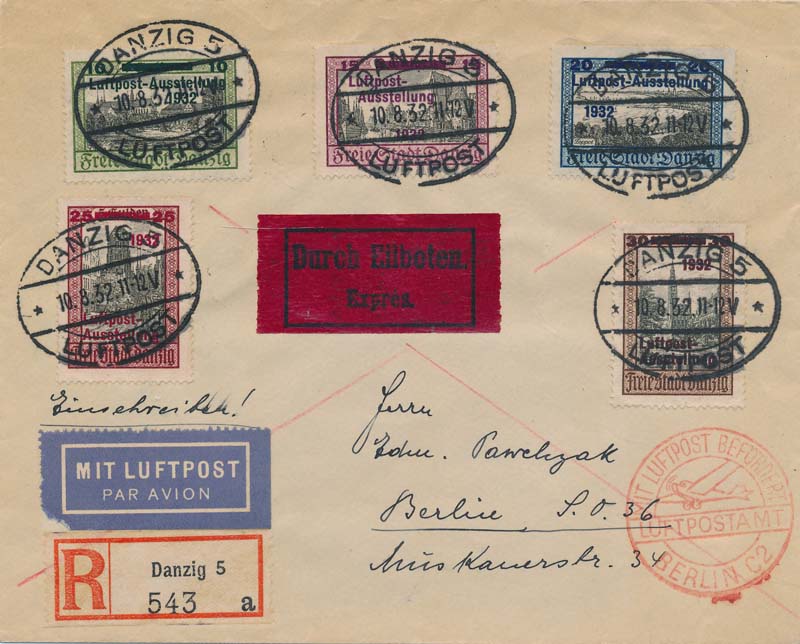 DANZIG 5
10 10
Luftpost-Ausstellung
1932
10.8.32
LUFTPOST
Freie Stadt Danzig
DANZIG 5
15
Luftpost-
Ausstellung
10.8.32.11-12V
1932
LUFTPOST
Freie Stadt Danzig
20 20
Luftpost-Ausstellung
1932
10.8.32.11-12V
Zoppot
LUFTPOST
Freie Stadt Danzig
25 25
1932
DANZIG 5
10.8.32.11-12V
Luftpost-
Ausstellung
LUFTPOST
Freie Stadt Danzig
Durch Eilboten.
Exprès.
30
DANZIG 5
1932
10.8.32.11-12V
Luftpost-
Ausstellung
LUFTPOST
Freie Stadt Danzig
Einschreiben!
MIT LUFTPOST
PAR AVION
R
Danzig 5
543 a
Herrn
Edm. Pawelczak
Berlin S.O. 36
Muskauerstr. 34
MIT LUFTPOST BEFÖRDERT
LUFTPOSTAMT
BERLIN C2